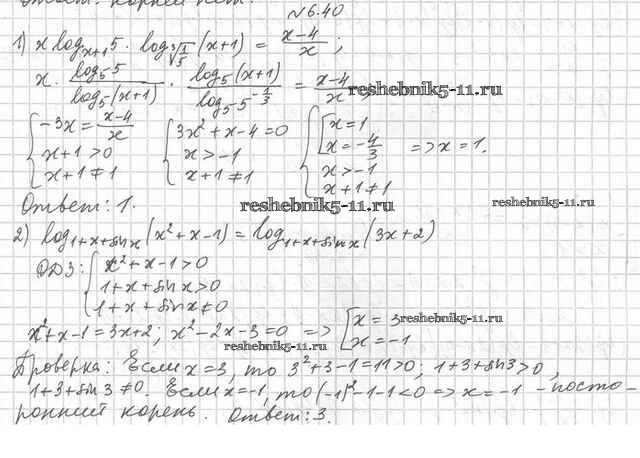 Ответ: корней нет.
№6.40
1) x log_{x+1} 5 · log_{∛(1/5)} (x+1) = (x-4)/x ;
x · (log_5 5)/(log_5 (x+1)) · (log_5 (x+1))/(log_5 5^{-1/3}) = (x-4)/x ;
reshebnik5-11.ru
{ -3x = (x-4)/x { 3x²+x-4=0 { [ x=1
x+1>0 x>-1 x=-4/3 => x=1.
x+1≠1 x+1≠1 x>-1
x+1≠1
Ответ: 1. reshebnik5-11.ru reshebnik5-11.ru
2) log_{1+x+sinx} (x²+x-1) = log_{1+x+sinx} (3x+2)
ОДЗ: { x²+x-1>0
1+x+sinx>0
1+x+sinx≠0
x²+x-1=3x+2; x²-2x-3=0 => [ x=3 reshebnik5-11.ru
reshebnik5-11.ru x=-1
Проверка: Если x=3, то 3²+3-1=11>0; 1+3+sin3>0,
1+3+sin3≠0. Если x=-1, то (-1)²-1-1<0 => x=-1 - посто-
ронний корень. Ответ: 3.